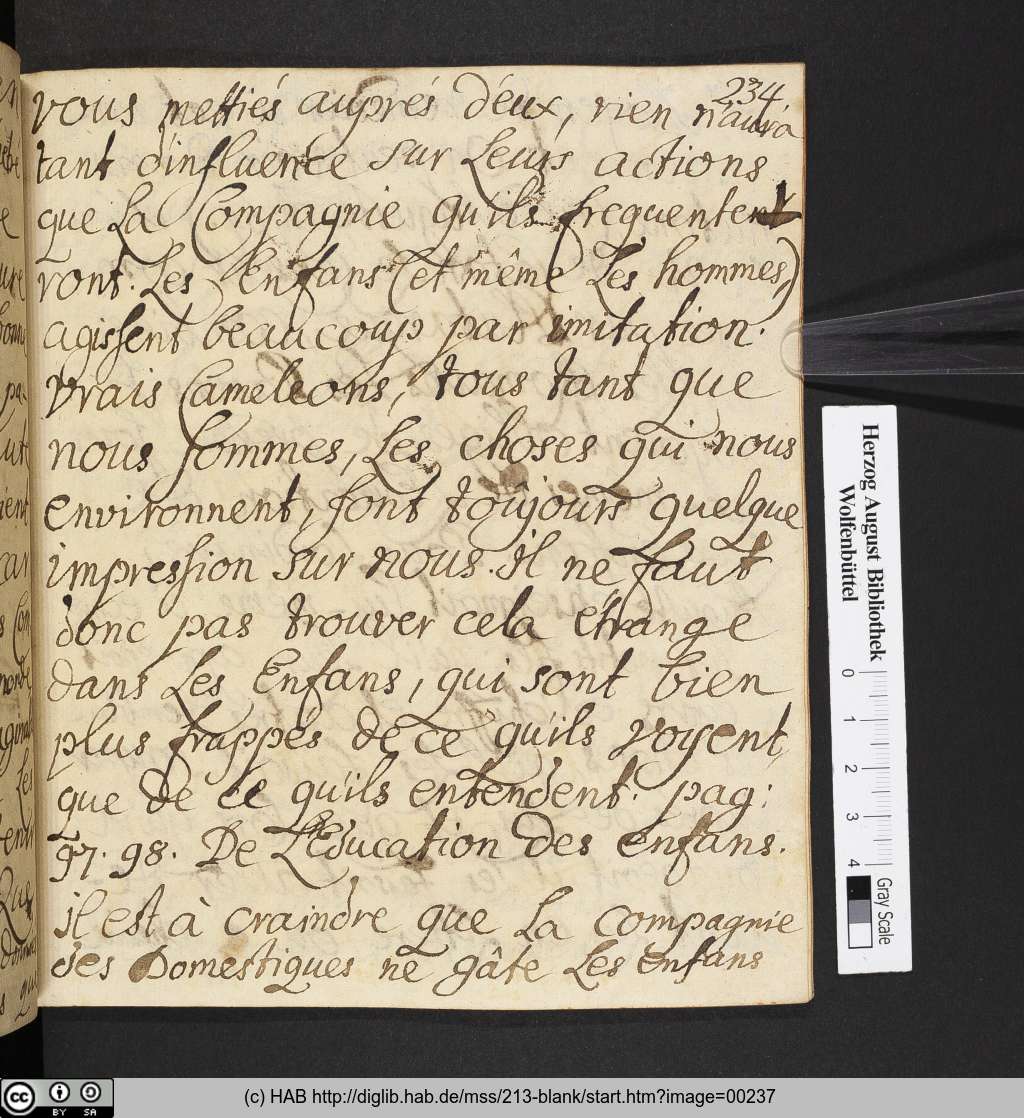 234.
vous mettiés auprés d'eux, rien n'aura
tant d'influence sur Leurs actions
que La Compagnie qu'ils frequente
ront. Les Enfans (et même Les hommes,)
agissent beaucoup par imitation.
vrais Cameleons, tous tant que
nous sommes, Les choses qui nous
environnent, font toûjours quelque
impression sur nous. il ne faut
donc pas trouver cela étrange
dans Les Enfans, qui sont bien
plus frappés de ce qu'ils voyent,
que de ce qu'ils entendent. pag:
97. 98. De L'Education des enfans.
il est à craindre que La compagnie
des Domestiques ne gâte Les enfans
Herzog August Bibliothek
Wolfenbüttel
0 1 2 3 4
Gray Scale
(c) HAB http://diglib.hab.de/mss/213-blank/start.htm?image=00237
cc BY SA